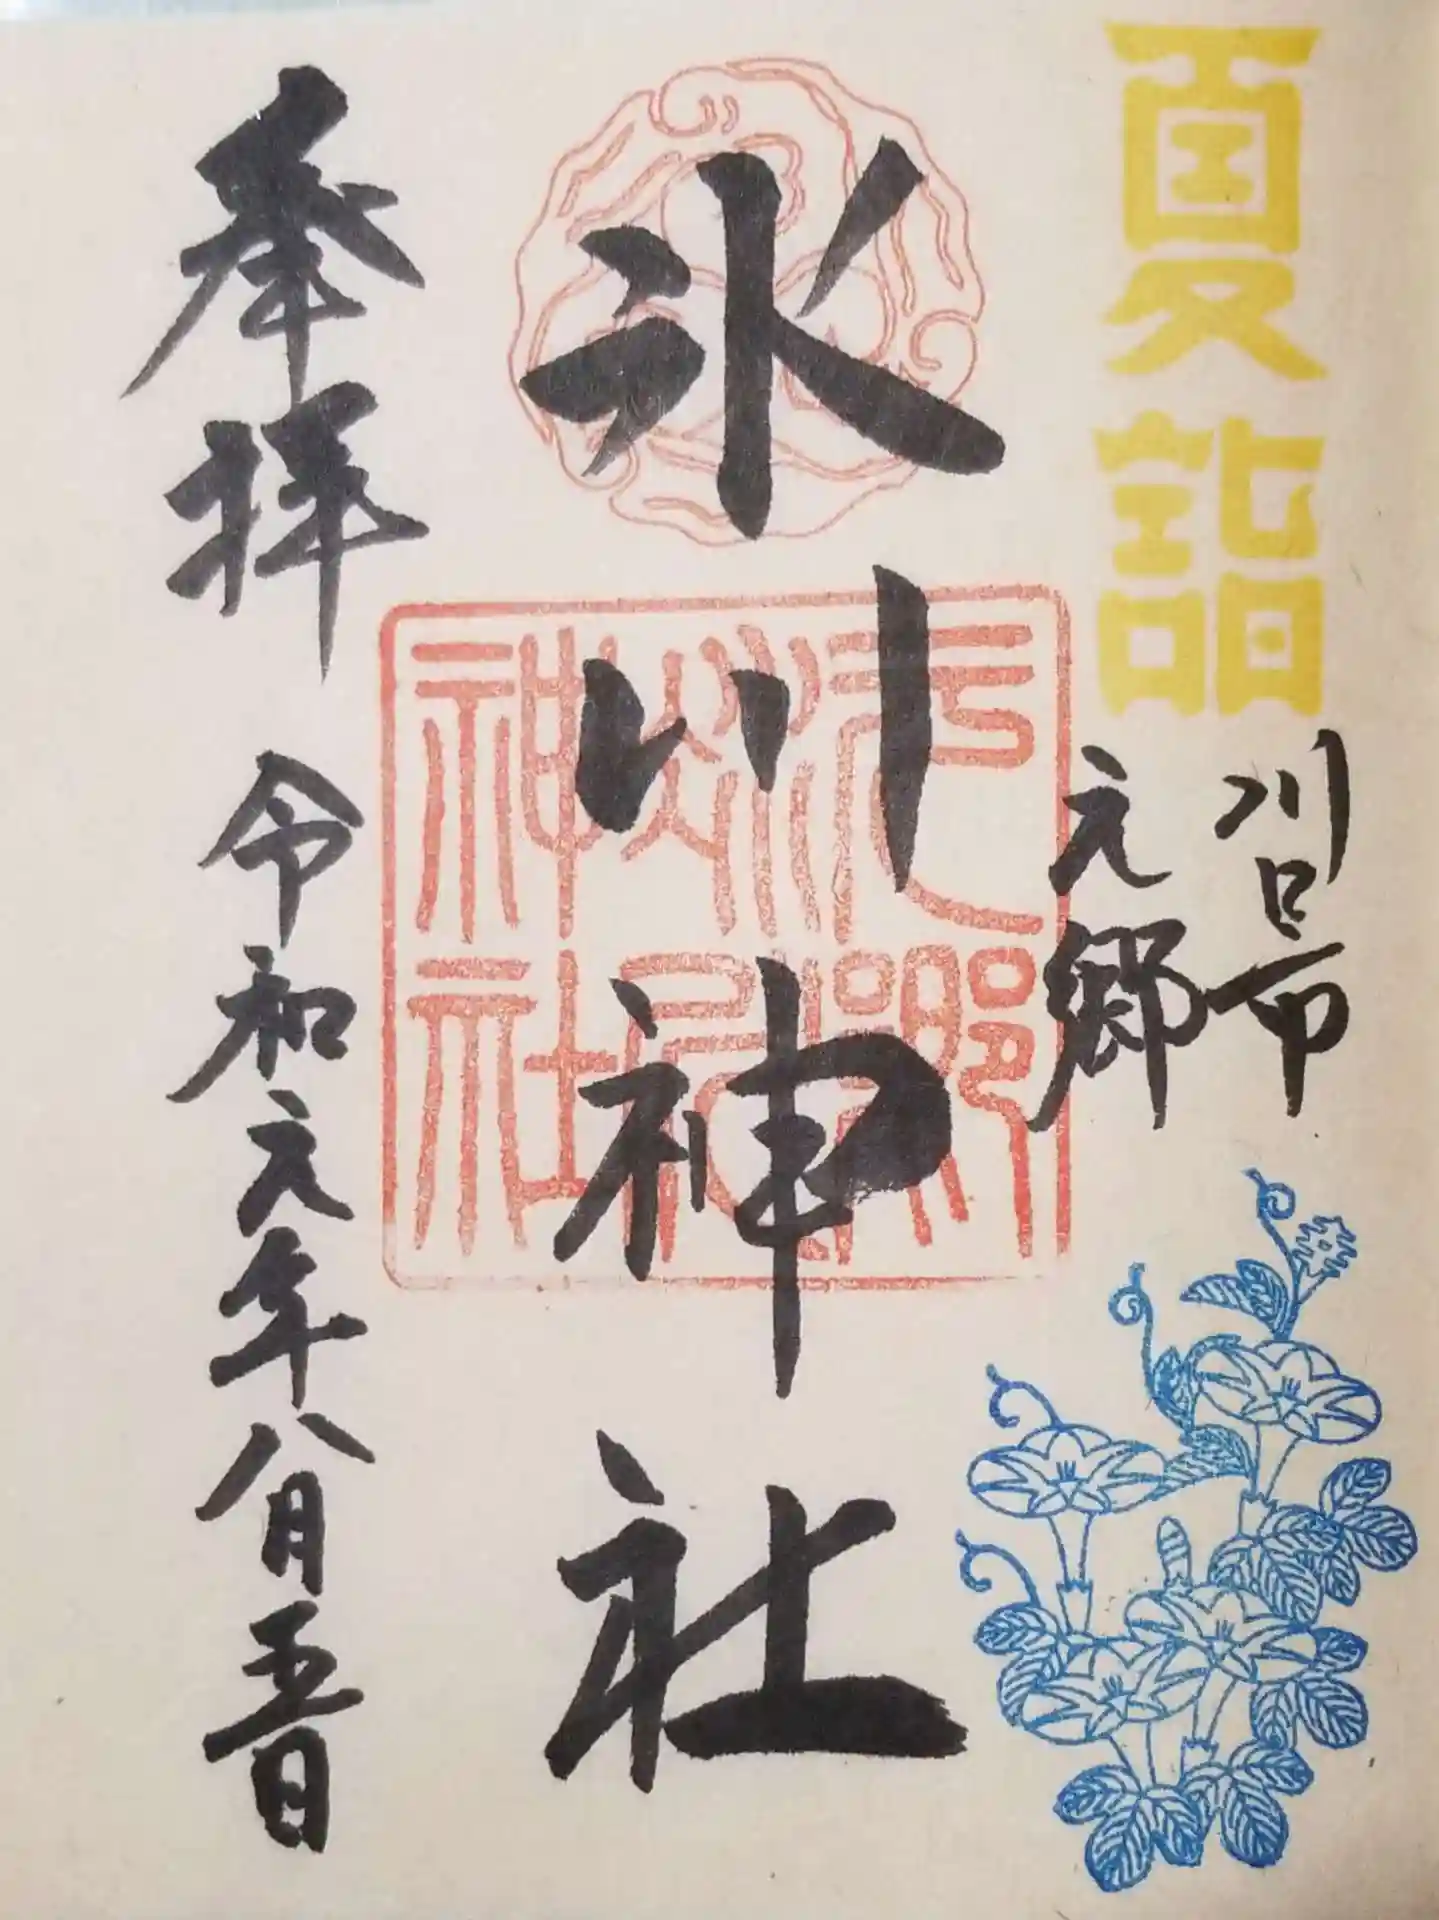 夏詣
川口市
元郷
氷川神社
元郷
氷川
神社
奉拝
令和元年八月五日